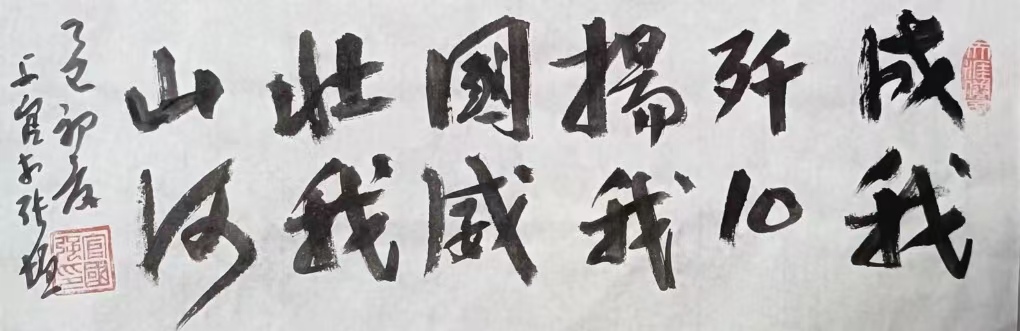 成我
歼10
揚我
國威
壯我
山河
乙巳初夏